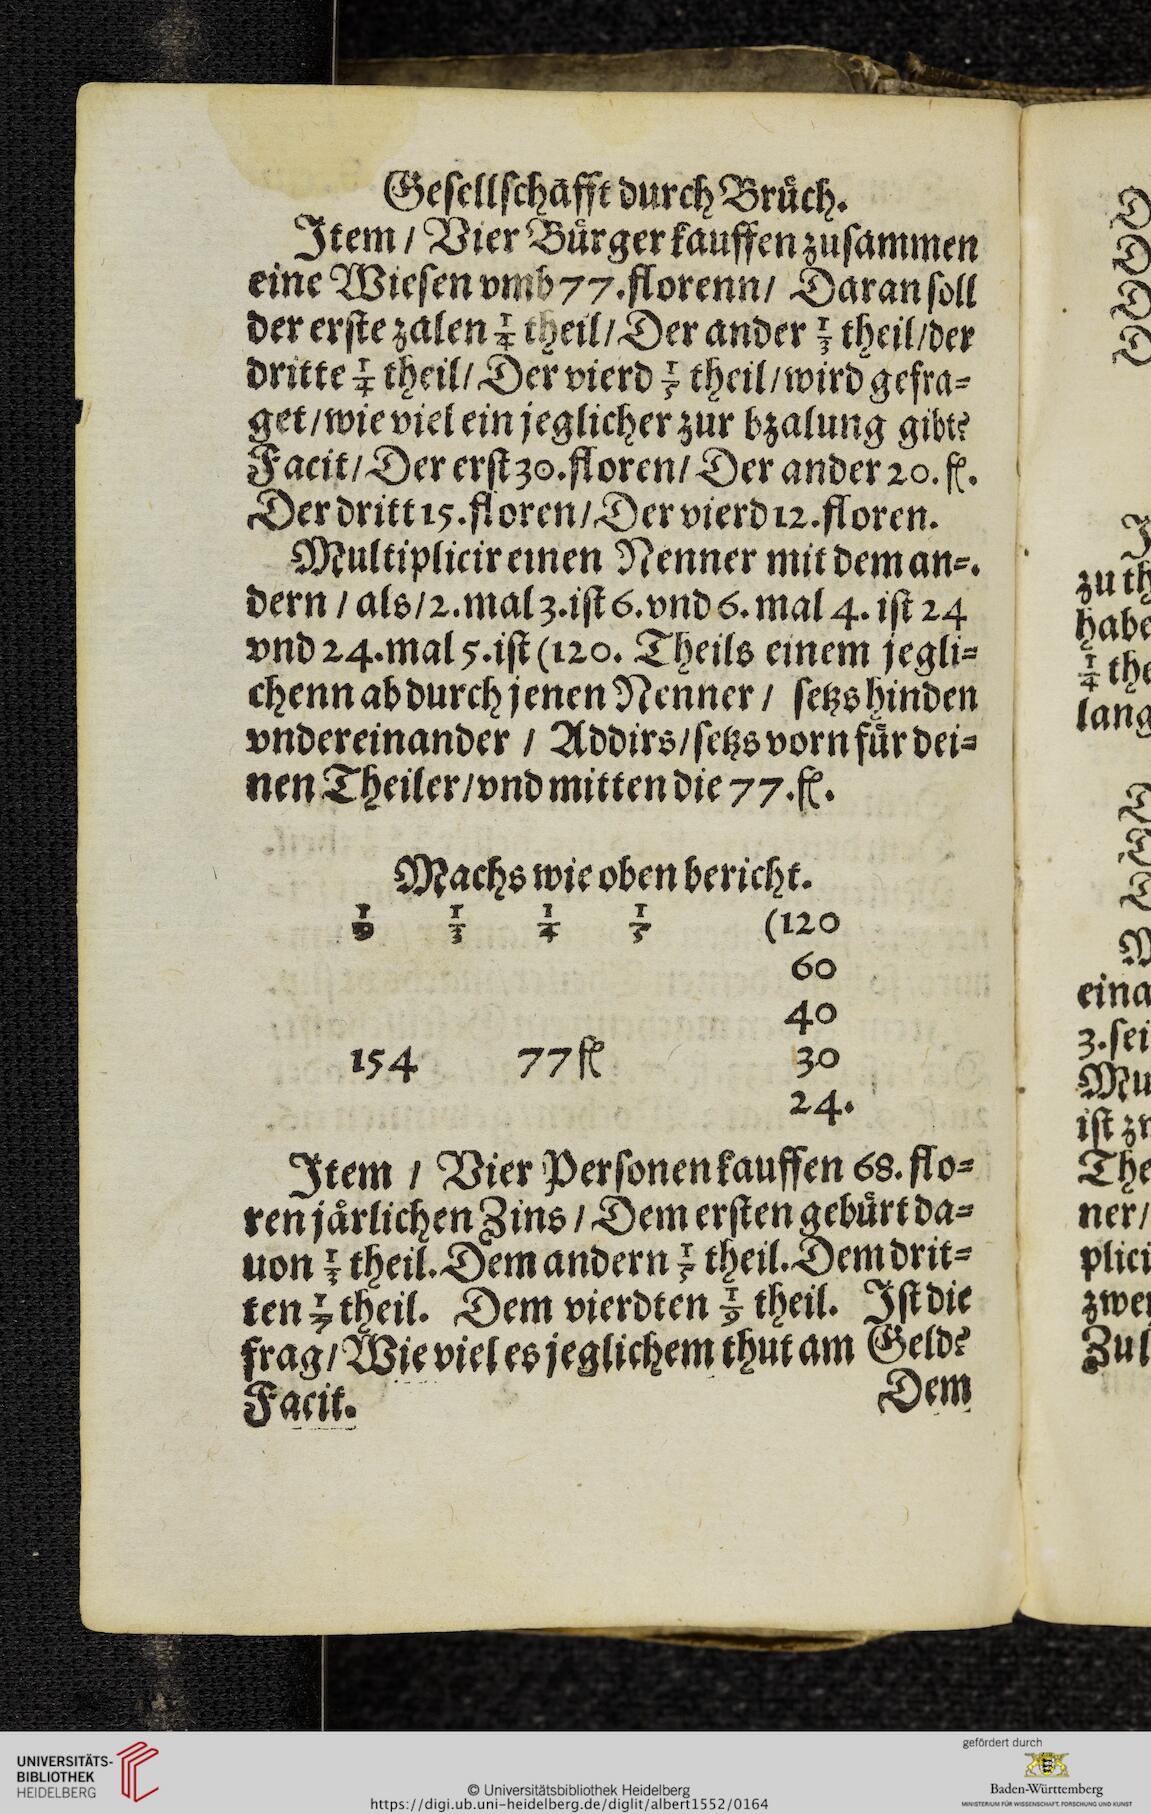 Gesellschafft durch Brüch.
Item / Vier Bürger kauffen zusammen
eine Wiesen vmb 77. florenn / Daran soll
der erste zalen 1/4 theil / Der ander 1/3 theil / der
dritte 1/4 theil / Der vierd 1/5 theil / wird gefra=
get / wie viel ein jeglicher zur bzalung gibt?
Facit / Der erst 30. floren / Der ander 20. fl.
Der dritt 15. floren / Der vierd 12. floren.
Multiplicir einen Nenner mit dem an=.
dern / als / 2. mal 3. ist 6. vnd 6. mal 4. ist 24
vnd 24. mal 5. ist (120. Theils einem jegli=
chenn ab durch jenen Nenner / setzs hinden
vndereinander / Addirs / setzs vorn für dei=
nen Theiler / vnd mitten die 77. fl.
Machs wie oben bericht.
1/3 1/4 1/5 (120
60
40
154 77 fl 30
24.
Item / Vier Personen kauffen 68. flo=
ren jårlichen Zins / Dem ersten gebürt da=
uon 1/3 theil. Dem andern 1/5 theil. Dem drit=
ten 1/7 theil. Dem vierdten 1/9 theil. Ist die
frag / Wie viel es jeglichem thut am Geld?
Facit. Dem
zu th
habe
1/4 the
lang
eina
3. sei
Mu
ist zw
The
ner /
plici
zwe
Zul
UNIVERSITÄTS-
BIBLIOTHEK
HEIDELBERG
© Universitätsbibliothek Heidelberg
https://digi.ub.uni-heidelberg.de/diglit/albert1552/0164
gefördert durch
Baden-Württemberg
MINISTERIUM FÜR WISSENSCHAFT, FORSCHUNG UND KUNST